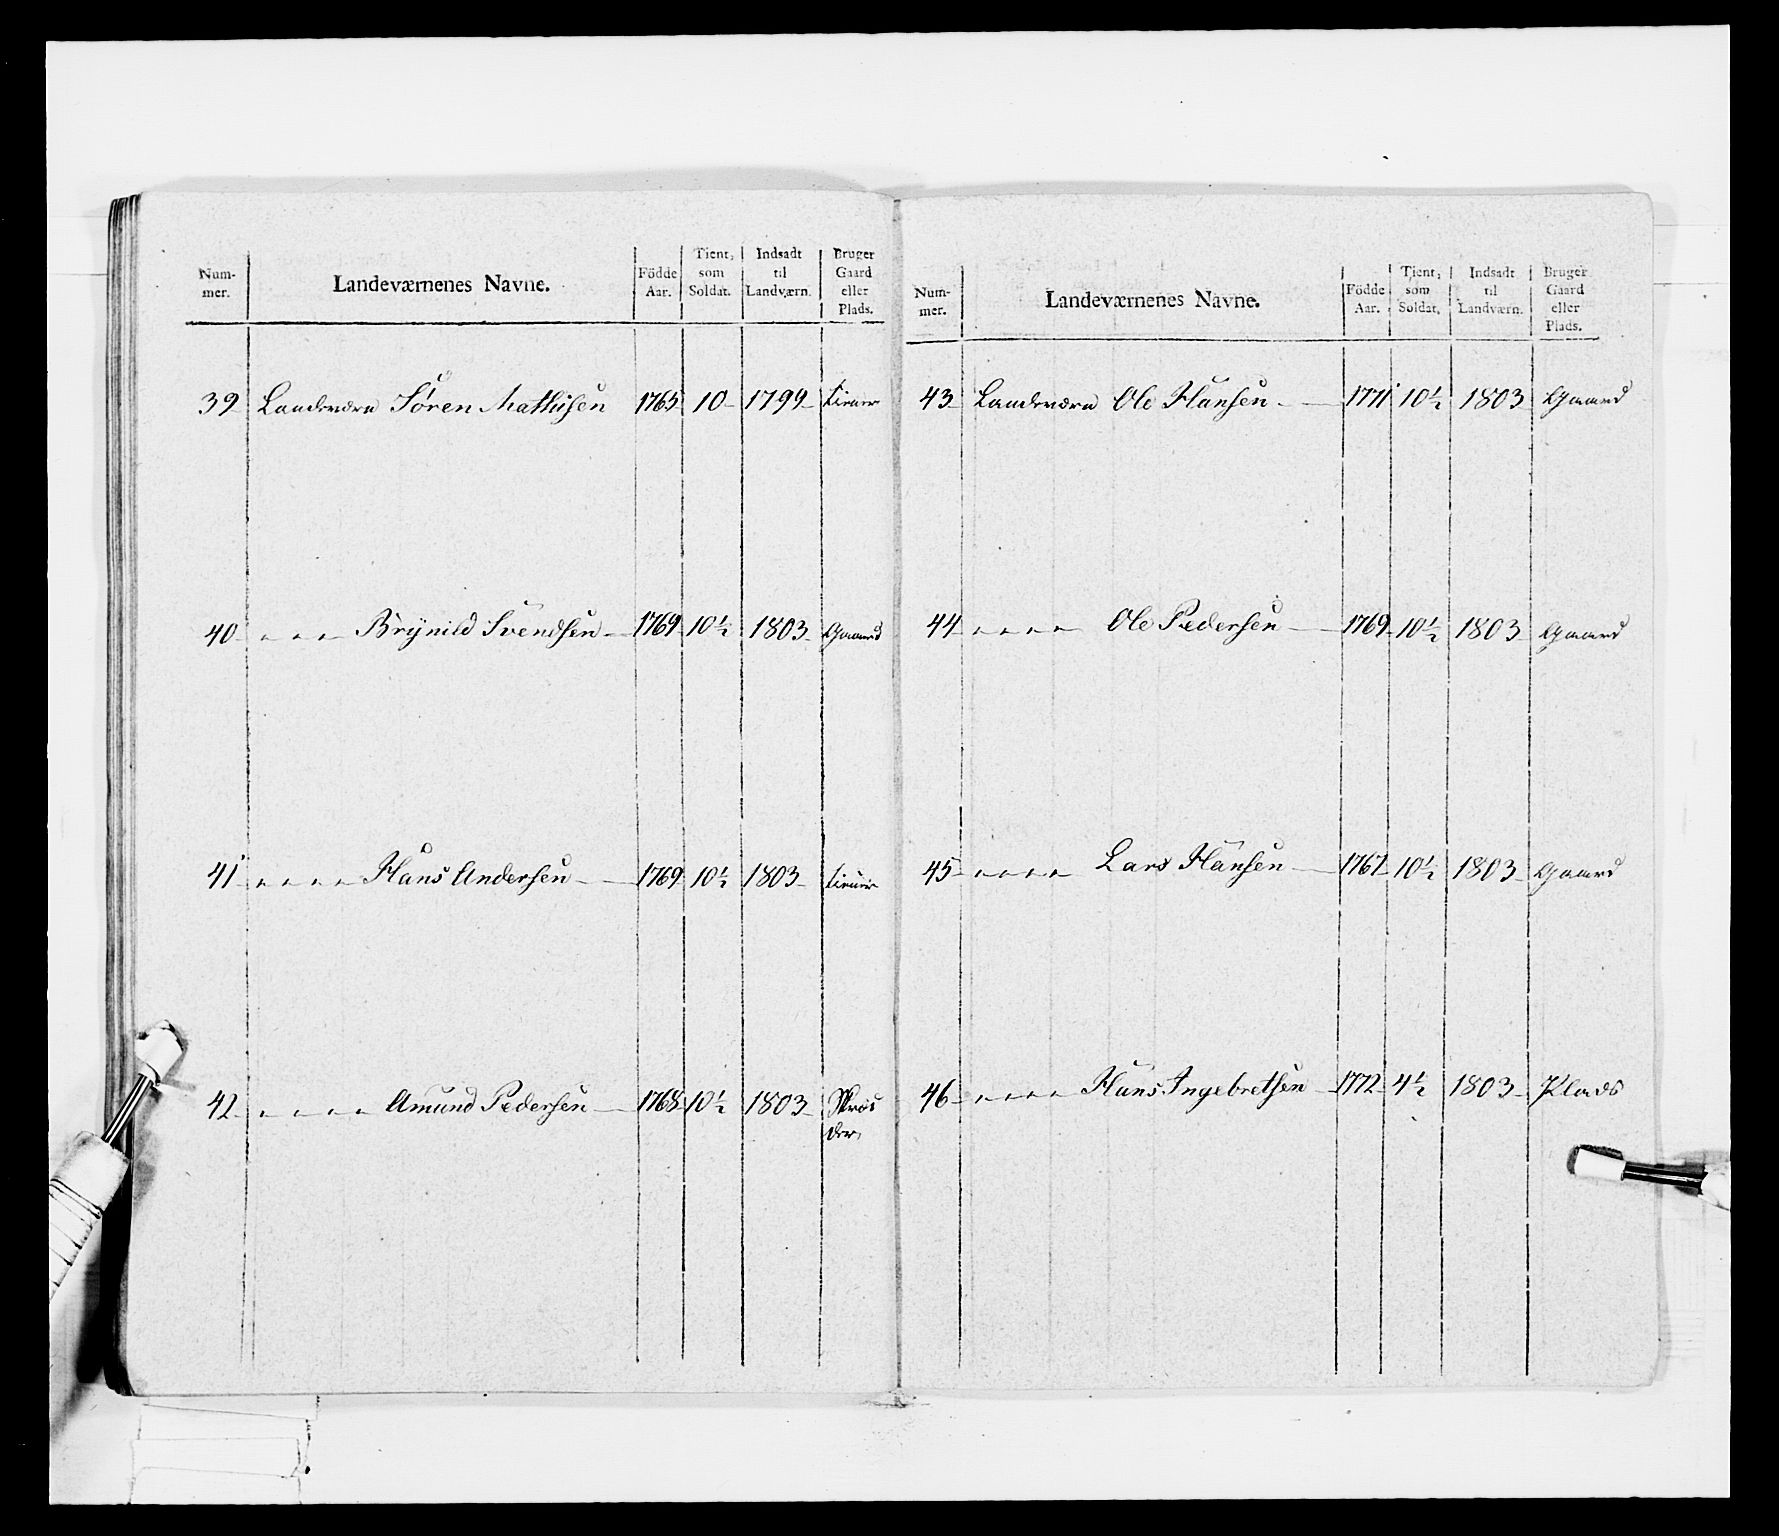 Num-
mer.
Landeværnenes Navne.
Födde
Aar.
Tient,
som
Soldat.
Indsadt
til
Landværn.
Bruger
Gaard
eller
Plads.
39 Landeværn Sören Mathisen 1765 10 1799
40 " " " " Brynild Svendsen 1769 10½ 1803 Gaard
41 " " " " Hans Andersen 1769 10½ 1803
42 " " " " Amund Pedersen 1768 10½ 1803
Num-
mer.
Landeværnenes Navne.
Födde
Aar.
Tient,
som
Soldat.
Indsadt
til
Landværn.
Bruger
Gaard
eller
Plads.
43 Landeværn Ole Hansen 1771 10½ 1803 Gaard
44 " " " " Ole Pedersen 1769 10½ 1803 Gaard
45 " " " " Lars Hansen 1767 10½ 1803 Gaard
46 " " " " Hans Ingebretsen 1772 4½ 1803 Plads